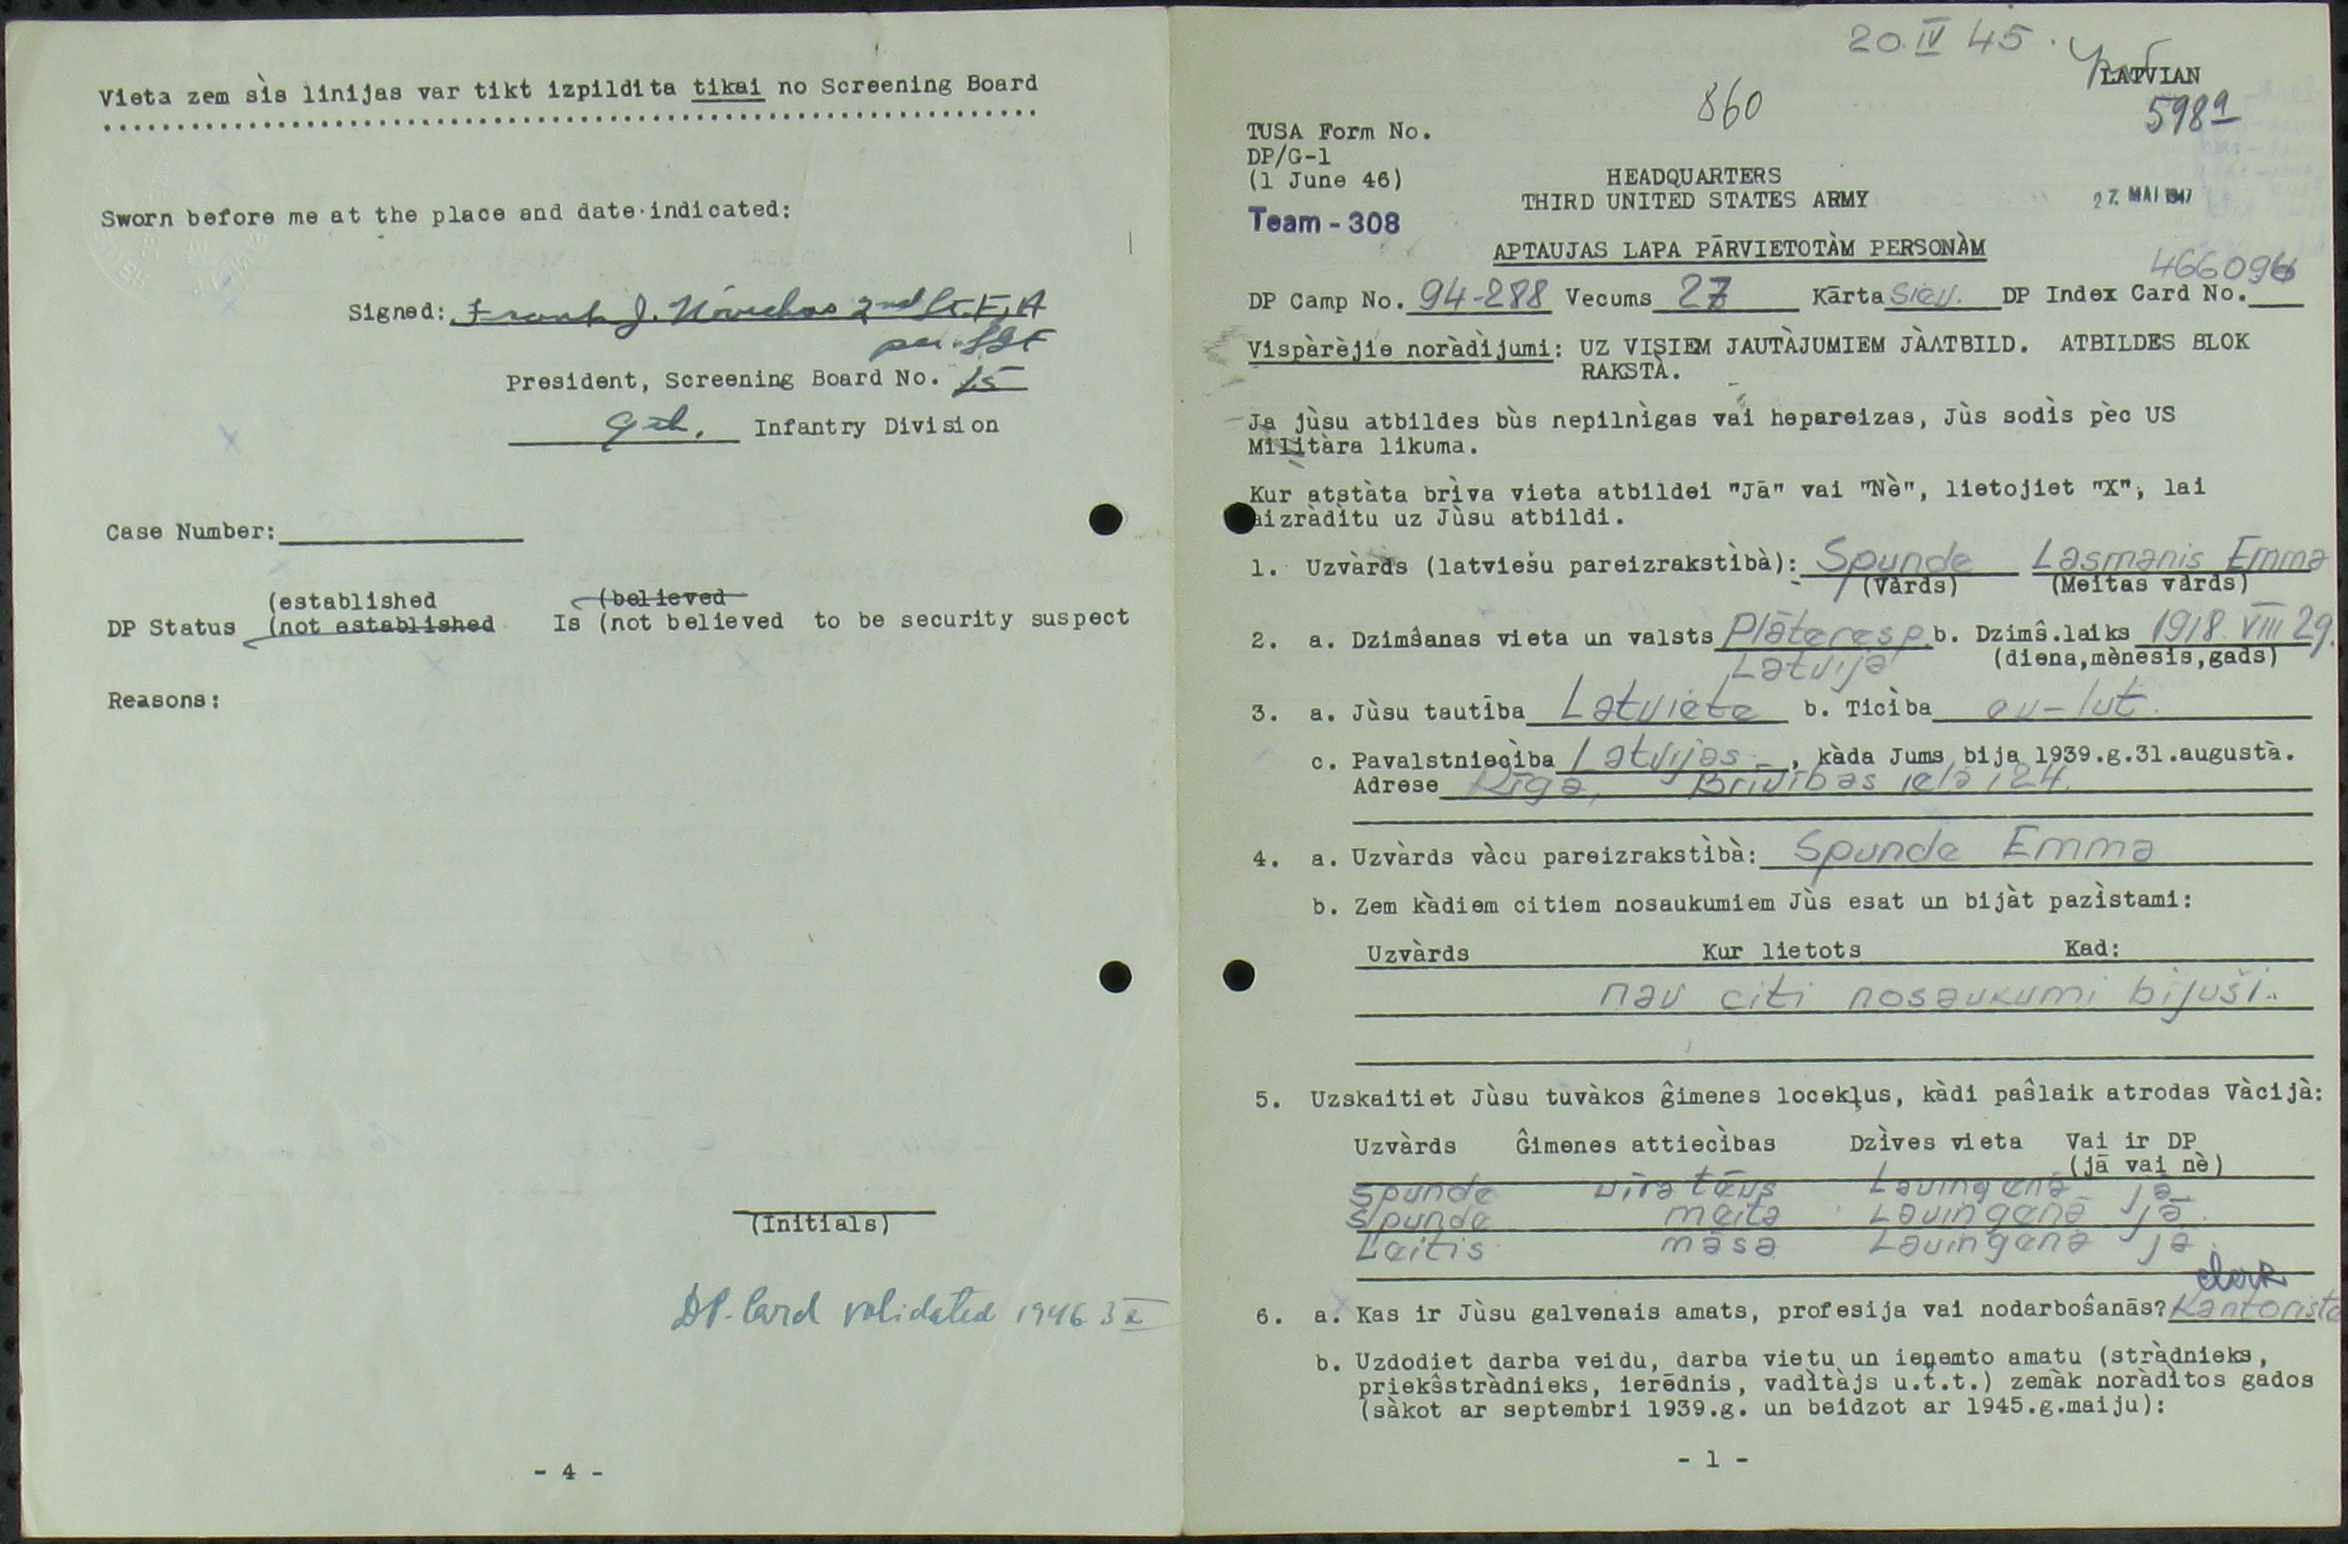 Vieta zem sìs linijas var tikt izpildita tikai no Screening Board
Sworn before me at the place and date indicated:
Signed: Frank J. 2nd Lt. F.A
President, Screening Board No. 15
9th. Infantry Division
Case Number:
(established (believed
DP Status (not established Is (not believed to be security suspect
Reasons:
(Initials)
DP-Card validated 1946 3 X
- 4 -
20. IV 45.
LATVIAN
860
598a
TUSA Form No.
DP/G-1
(1 June 46)
HEADQUARTERS
THIRD UNITED STATES ARMY
27. MAI 1947
Team - 308
APTAUJAS LAPA PĀRVIETOTÀM PERSONÀM
466096
DP Camp No. 94-288 Vecums 27 Kārta siev. DP Index Card No.
Vispàrèjie noràdìjumi: UZ VISIEM JAUTÀJUMIEM JÀATBILD. ATBILDES BLOK
RAKSTÀ.
Ja jùsu atbildes bùs nepilnìgas vai hepareizas, Jùs sodìs pèc US
Militàra likuma.
Kur atstàta brìva vieta atbildei "Jā" vai "Nè", lietojiet "X", lai
aizràdìtu uz Jùsu atbildi.
1. Uzvàrds (latviešu pareizrakstìbà): Spunde Lasmanis Emma
(Vàrds) (Meitas vàrds)
2. a. Dzimšanas vieta un valsts Plāteresp. b. Dzimŝ.laiks 1918. VIII 29.
Latvija (diena,mènesis,gads)
3. a. Jùsu tautība Latviete b. Ticìba ev-lut.
c. Pavalstniecìba Latvijas , kàda Jums bija 1939.g.31.augustà.
Adrese Rīga, Brīvības ielā 124.
4. a. Uzvàrds vàcu pareizrakstìbà: Spunde Emma
b. Zem kàdiem citiem nosaukumiem Jùs esat un bijàt pazìstami:
Uzvàrds Kur lietots Kad:
nav citi nosaukumi bijuši.
5. Uzskaitiet Jùsu tuvàkos ĝimenes locekļus, kàdi paŝlaik atrodas Vàcijà:
Uzvàrds Ĝimenes attiecìbas Dzìves vieta Vai ir DP
(jā vai nè)
Spunde vīra tēvs Lauingenā jā
Spunde meita Lauingenā jā.
Leitis māsa Lauingenā jā.
clerk
6. a. Kas ir Jùsu galvenais amats, profesija vai nodarboŝanās? Kantoriste
b. Uzdodiet darba veidu, darba vietu un ieņemto amatu (stràdnieks,
priekŝstràdnieks, ierēdnis, vadìtàjs u.t.t.) zemàk noràdìtos gados
(sàkot ar septembri 1939.g. un beidzot ar 1945.g.maiju):
- 1 -